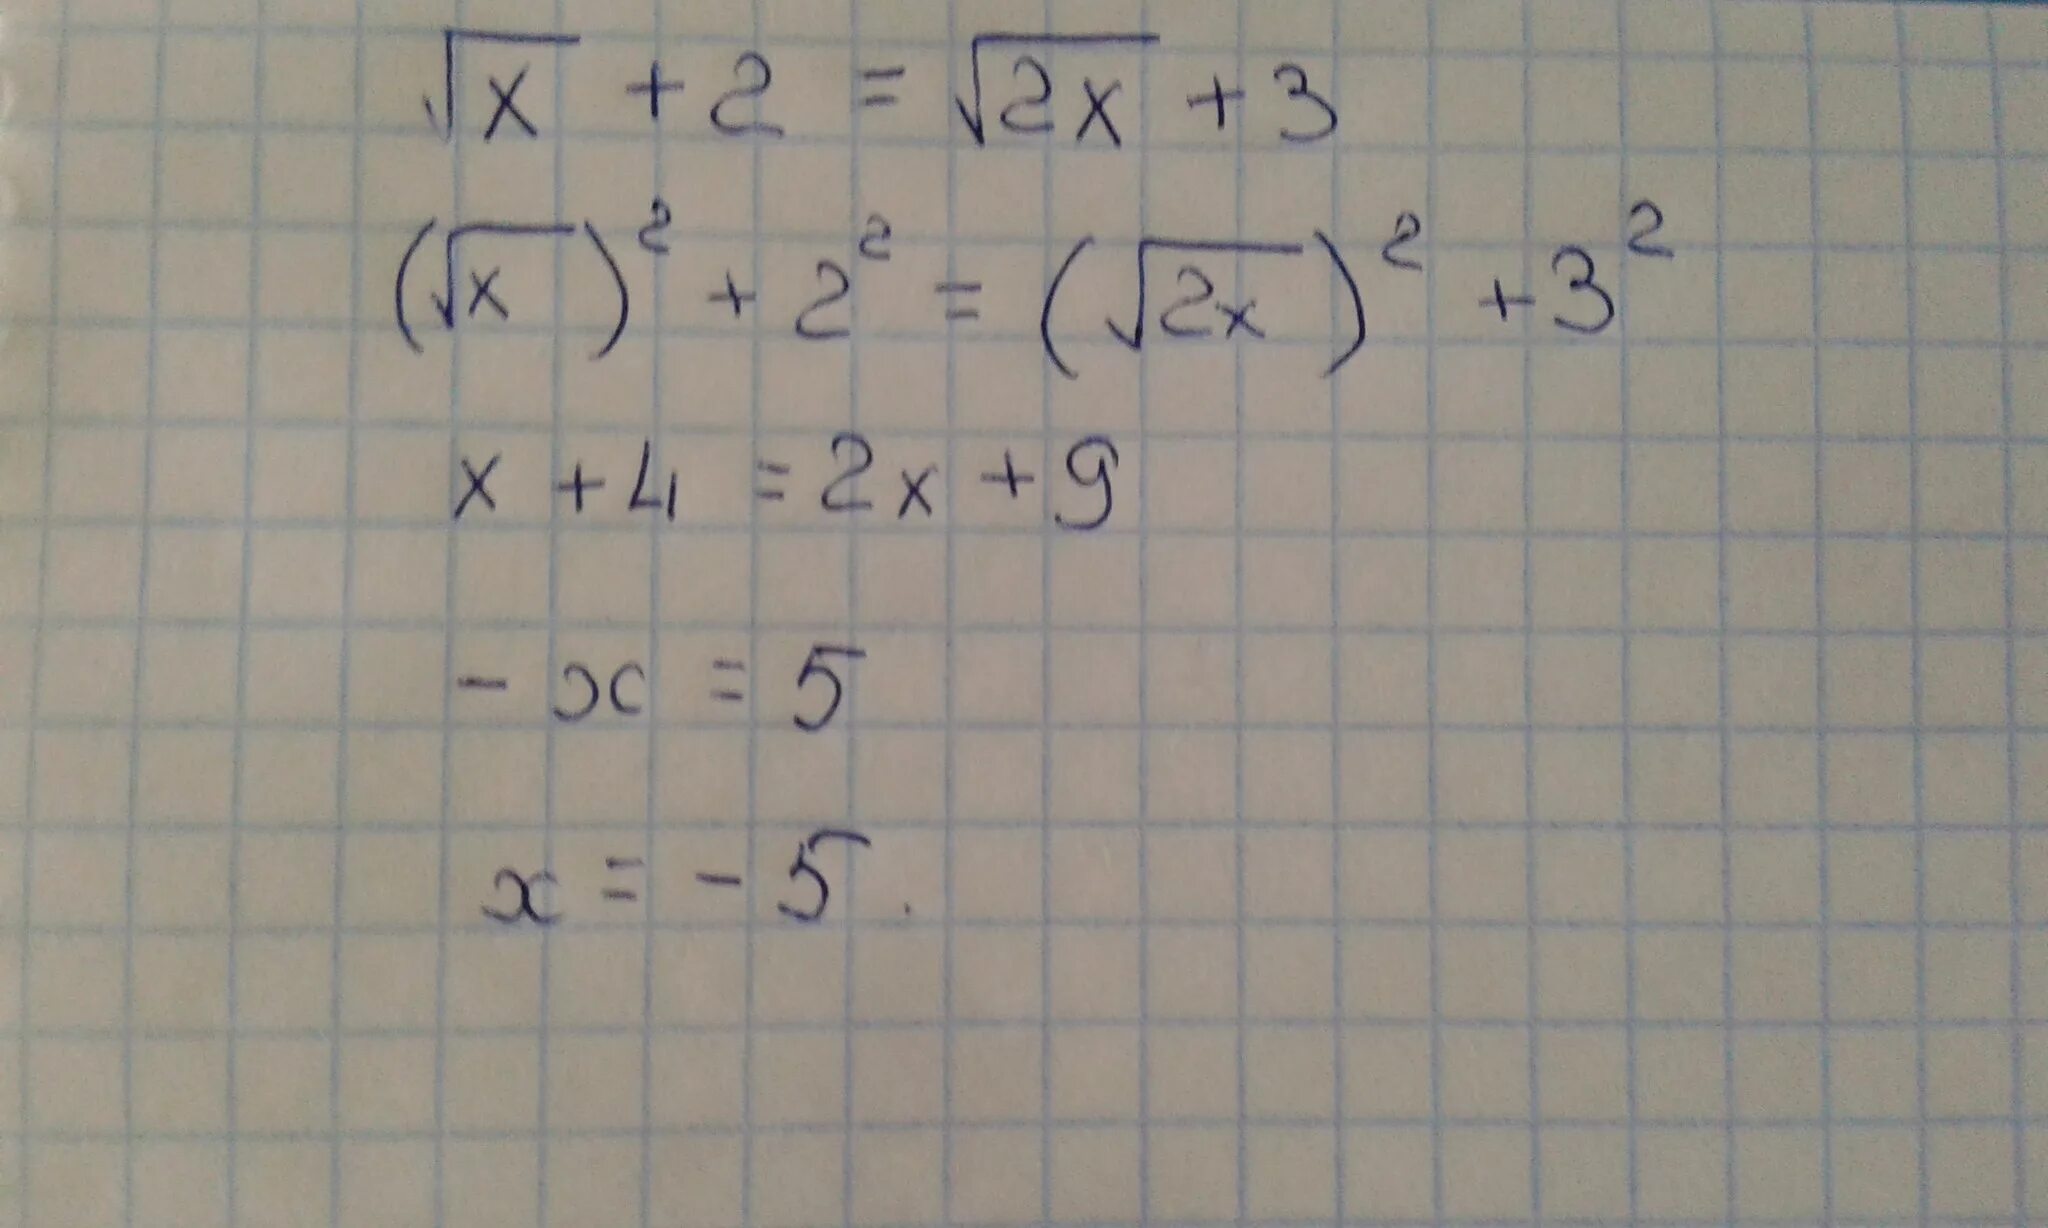 √x + 2 = √2x + 3
(√x)² + 2² = (√2x)² + 3²
x + 4 = 2x + 9
- x = 5
x = - 5.